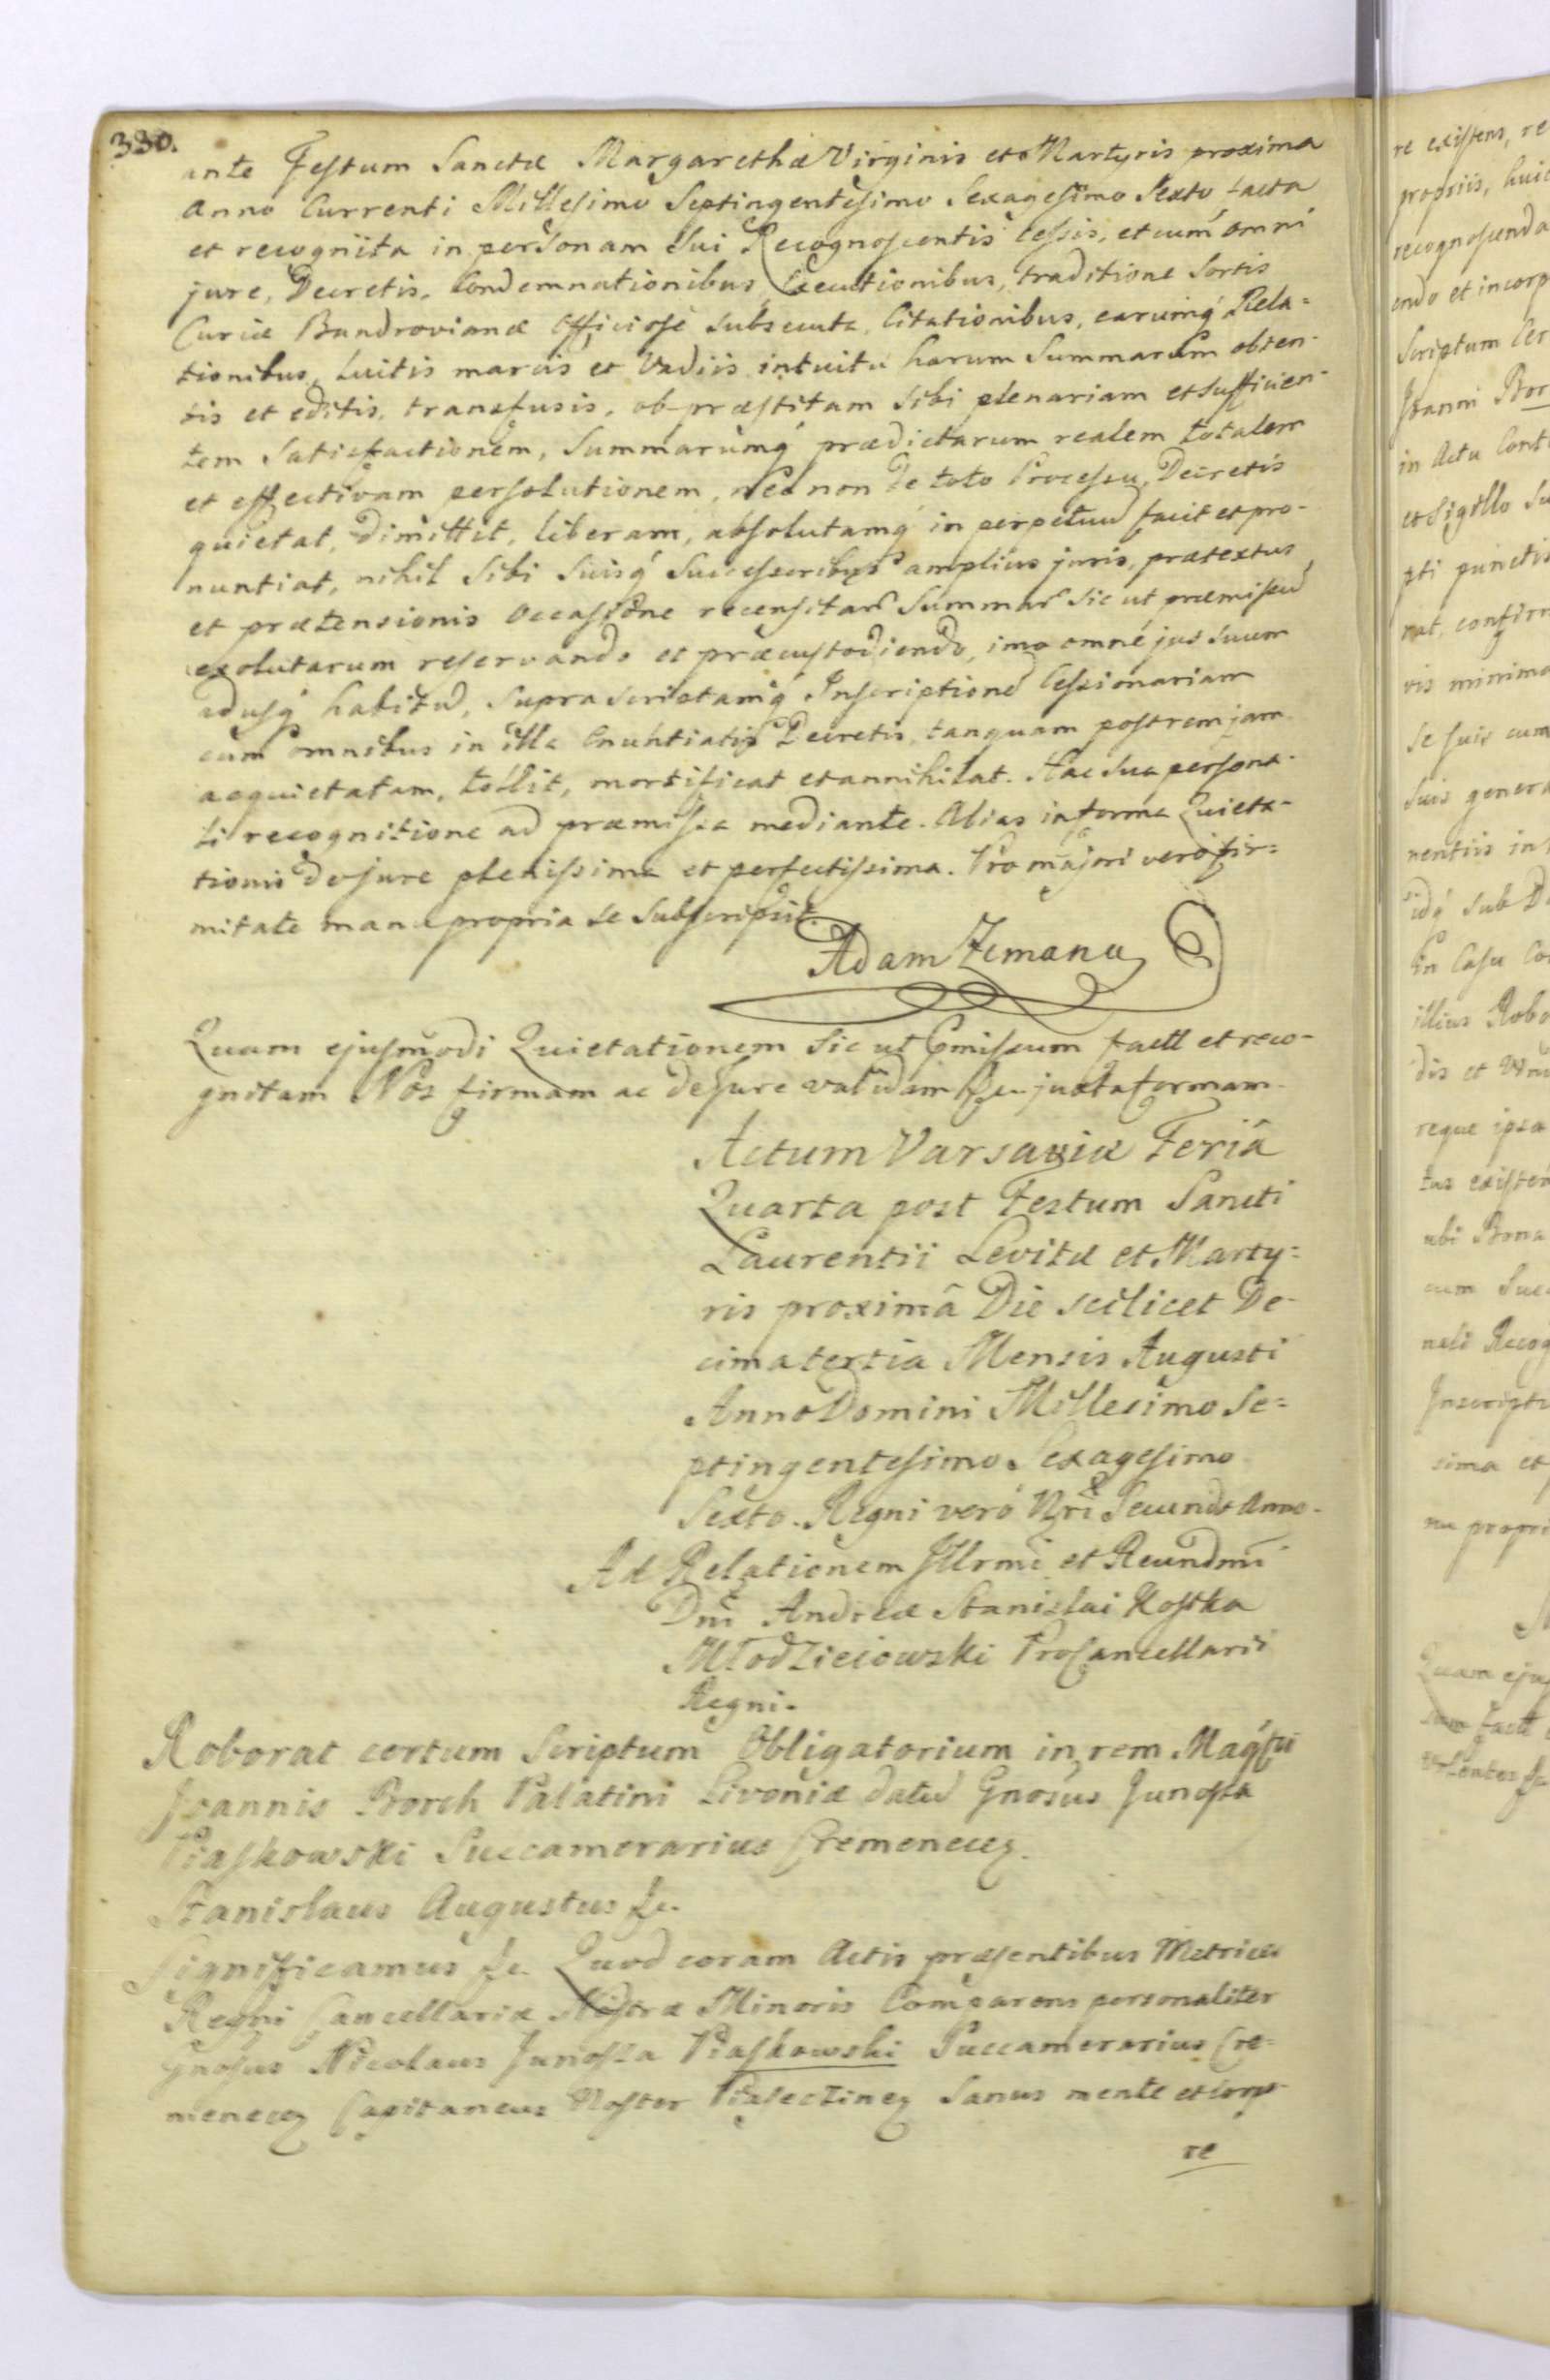 330.
ante Festum Sanctæ Margarethæ Virginis et Martyris proxima
Anno Currenti Millesimo Septingentesimo Sexagesimo Sexto facta
et recognita in personam Sui Recognoscentis cessis, et cum omni
jure, Decretis, Condemnationibus, Executionibus, traditione Sortis
Curiæ Bandrovianæ Officiose subsecuta, Citationibus, earumq́ Rela=
tionibus, Luitis marcis et Vadiis intuitu harum Summarum obten-
tis et editis, transfusis, ob præstitam sibi plenariam et sufficien-
tem Satisfactionem, Summarumq́ prædictarum realem totalem
et effectivam persolutionem, nec non de toto Processu, Decretis
quietat, Dimittit, liberam, absolutamq́ in perpetuũ facit et pro-
nuntiat, nihil Sibi Suisq́ Successoribus amplius juris, prætextus
et prætensionis occasione recensitar̃ Summar̃ sic ut præmissũ
exolutarum reservando et præcustodiendo, imo omne jus suum
adusq́ habitũ, supra scriptamq́ Inscriptionẽ Cessionariam
cum omnibus in illa Enuntiatis Decretis, tanquam postrem jam
acquietatam, tollit, mortificat et annihilat. Hac sua persona-
li recognitione ad præmissa mediante. Alias in forma Quieta-
tionis de jure plenissima et perfectissima. Pro majori vero fir=
mitate manu propria se Subscripsit.
Adam Zemanu
Quam ejusmodi Quietationem Sic ut Pmissum fact̃ et reco-
gnitam Nos firmam ac de jure validam &c. juxta formam.
Actum Varsaviæ Feriâ
Quarta post Festum Sancti
Laurentii Levitæ et Marty=
ris proximâ Die scilicet De-
cima tertia Mensis Augusti
Anno Domini Millesimo Se=
ptingentesimo Sexagesimo
Sexto. Regni verò Nr̃i Secundo Anno.
Ad Relationem Illrmi et Reundmi
Dni Andreæ Stanislai Kostka
Młodzieiowski ProCancellarii
Regni.
Roborat certum Scriptum Obligatorium in rem Magci
Joannis Borch Palatini Livoniæ datũ Gnosus Junosza
Piaskowski Succamerarius Cremenecen.
Stanislaus Augustus &c.
Significamus &c. Quod coram Actis præsentibus Metrices
Regni Cancellariæ Nostræ Minoris Comparens personaliter
Gnosus Nicolaus Junosza Piaskowski Succamerarius Cre=
menecen Capitaneus Noster Sanus mente et corpo-
re
re existens, re
propriis, huic
recognoscenda
endo et incorp
Scriptum
Joanni Bor
in Actu Cont
et Sigillo Su
pti punctis
rat, confirm
ris minima
se suis cum
suis genera
nentiis in
idq́ sub
in Casu Co
illius Robo
dis et
reque ipsa
tus existen
ubi Bona
cum Suc
nali Recog
Inscriptio
sima et
nu propri
Quam eju